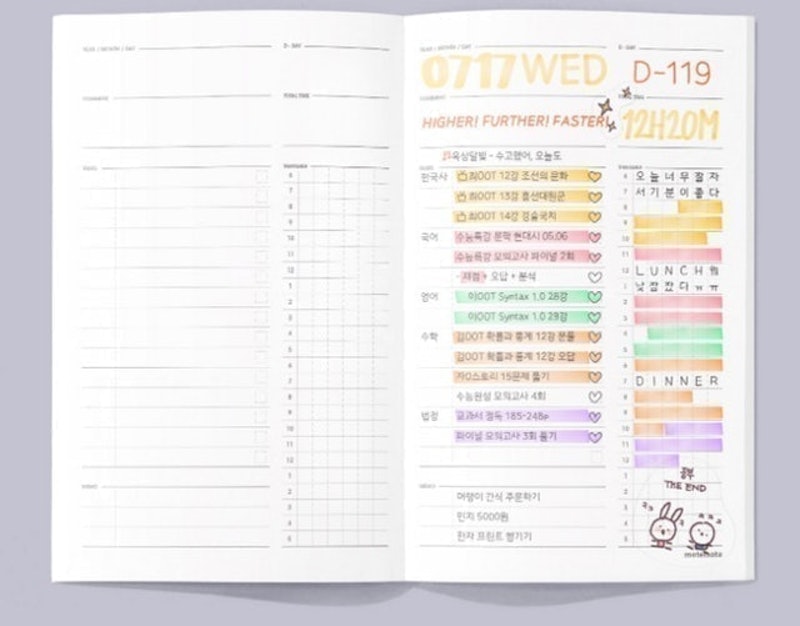 YEAR / MONTH / DAY
D-DAY
COMMENT
TOTAL TIME
TASKS
TIMETABLE
6
7
8
9
10
11
12
1
2
3
4
5
6
7
8
9
10
11
12
1
2
3
4
5
MEMO
YEAR / MONTH / DAY
D-DAY
0717 WED
D-119
COMMENT
HIGHER! FURTHER! FASTER!
12H20M
옥상달빛 - 수고했어, 오늘도
한국사
최OOT 12강 조선의 문화
최OOT 13강 흥선대원군
최OOT 14강 경술국치
국어
수능특강 문학 현대시 05,06
수능특강 모의고사 파이널 2회
- 채점 + 오답 + 분석
영어
이OOT Syntax 1.0 28강
이OOT Syntax 1.0 29강
수학
김OOT 확률과 통계 12강 문풀
김OOT 확률과 통계 12강 오답
자O스토리 15문제 풀기
수능완성 모의고사 4회
법정
교과서 정독 185-248p
파이널 모의고사 3회 풀기
TIMETABLE
6 오늘너무잘자
7 서기분이좋다
8
9
10
11
12 LUNCH
1 낮잠잤다ㅠㅠ
2
3
4
5
6
7 DINNER
8
9
10
11
12
1
2
3
4
5
THE END
MEMO
머랭이 간식 주문하기
민지 5000원
전자 프린트 챙기기
motemote